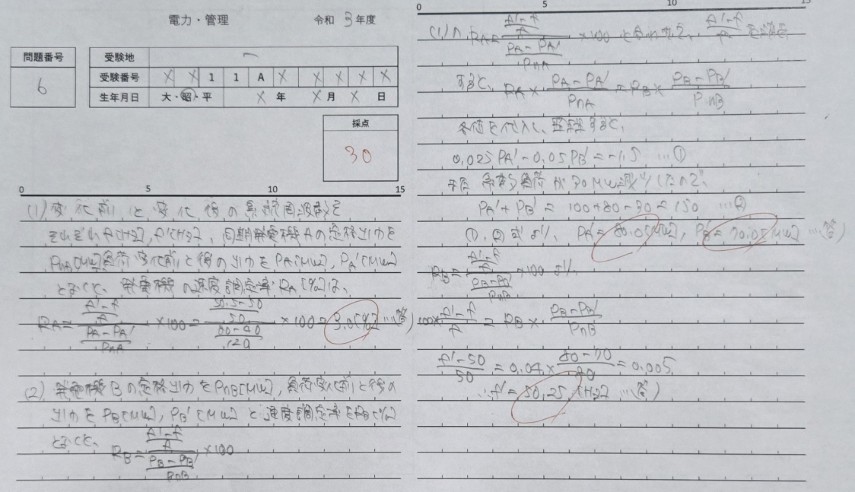 電力・管理
令和 3 年度
問題番号
6
受験地 一
受験番号 X X 1 1 A X X X X X
生年月日 大・昭・平 X 年 X 月 X 日
採点
30
0 5 10 15
(1) 変化前と変化後の系統周波数を
それぞれf[Hz], f'[Hz], 同期発電機Aの定格出力を
PnA[MW]負荷変化前と後の出力をPA[MW], PA'[MW]
とおくと、発電機の速度調定率RA[%]は、
RA = ((f'-f)/f)/((PA-PA')/PnA) ×100 = ((50.5-50)/50)/((
×100 = 3.0[%] …(答)
(2) 発電機Bの定格出力をPnB[MW], 負荷変化前と後の
出力をPB[MW], PB'[MW] と速度調定率をRB[%]
とおくと、
RB = ((f'-f)/f)/((PB-PB')/PnB) ×100
0 5 10 15
RA = ((f'-f)/f)/((PA-PA')/PnA) ×100
(f'-f)/f
すると、 RA × (PA-PA')/PnA = RB × (PB-PB')/PnB
各値を代入し、整理すると、
0.025PA' - 0.05PB' = -1.5 …①
負荷が30MW減少したので、
PA' + PB' = 100+80-30 = 150 …②
①, ②式より、 PA' = 80.0[MW], PB' = 70.0[MW] …(答)
RB = ((f'-f)/f)/((PB-PB')/PnB) ×100 より、
100× (f'-f)/f = RB × (PB-PB')/PnB
(f'-50)/50 = 0.04 × (80-70)/80 = 0.005
∴f' = 50.25 [Hz] …(答)